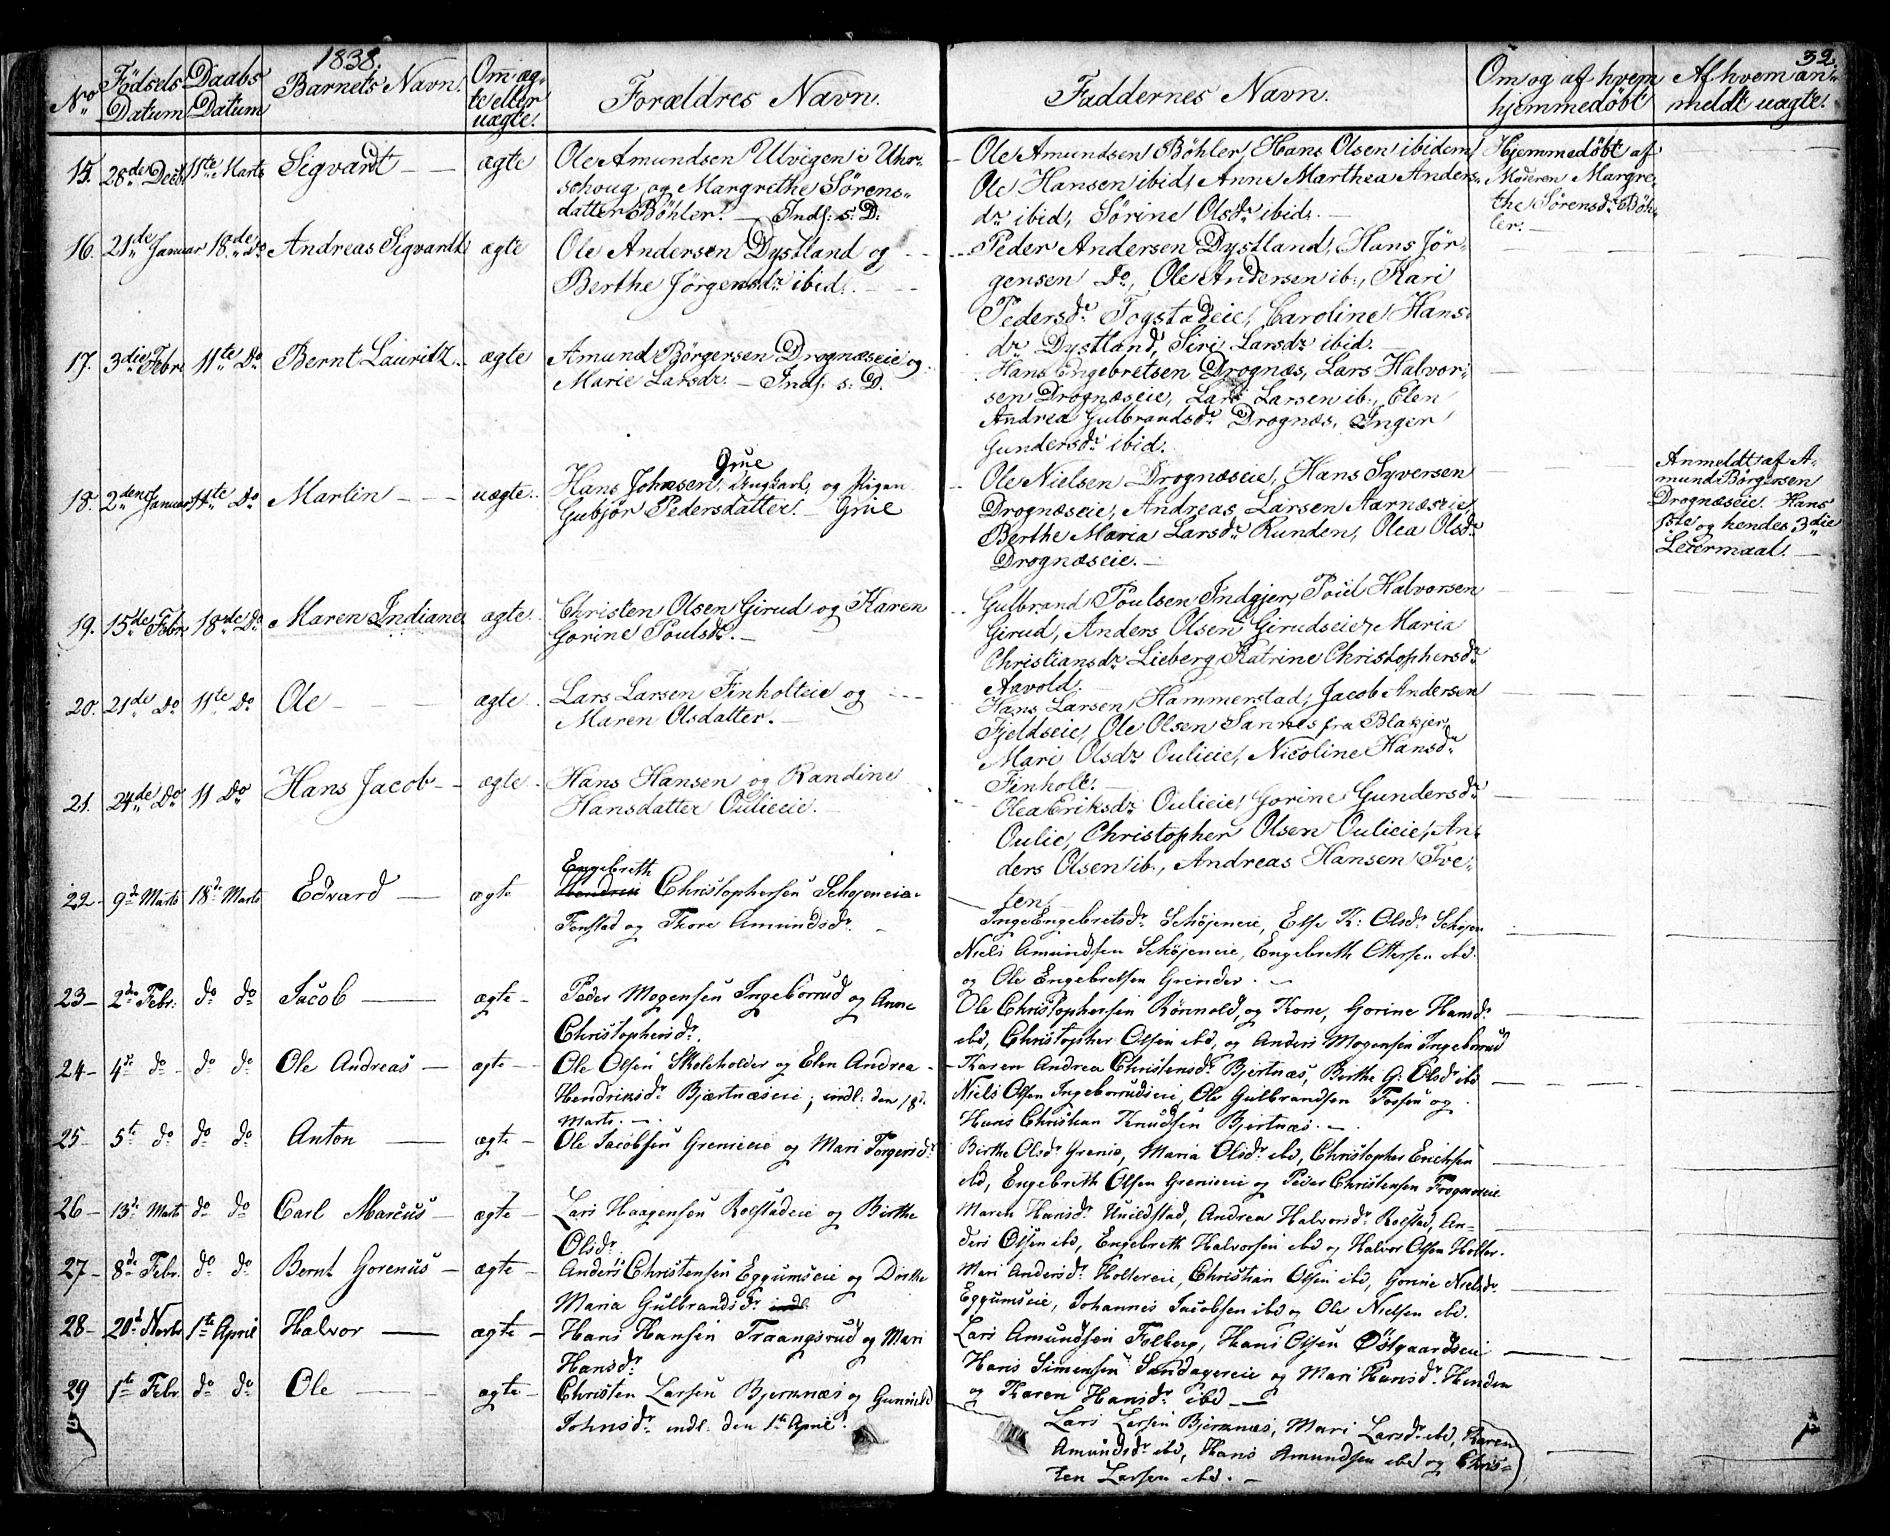 1838.
32.
No
Fødsels Datum
Daabs Datum
Barnets Navn.
Om æg-
te eller
uægte.
Forældres Navn.
Faddernes Navn.
Om og af hvem
hjemmedøbt
Af hvem an-
meldt uægte.
15. 28de Decbr 11te Marts Sigvardt ægte
Ole Amundsen Ulvigen i Uhr-
schoug og Margrethe Sørens-
datter Bøhler. Indf: s: D:
Ole Amundsen Bøhler, Hans Olsen ibidem
Ole Hansen ibid, Anne Marthea Anders-
dr ibid, Sørine Olsdr ibid.
Hjemmedøbt af
Moderen Margre-
the Sørensdr Bøh-
ler.
16. 21de Januar 18de Do Andreas Sigvardt ægte
Ole Andersen Dystland og
Berthe Jørgensdr ibid.
Peder Andersen Dystland, Hans Jør-
gensen Do, Ole Andersen ib:, Kari
Pedersdr Togstadeie, Caroline Hans-
dr Dystland, Siri Larsdr ibid.
17. 3die Febr. 11te Do Bernt Lauritz ægte
Amund Børgersen Drognæseie og
Marie Larsdr. Indf: s: D.
Hans Engebretsen Drognæs, Lars Halvor-
sen Drognæseie, Lars Larsen ib:, Elen
Andrea Gulbrandsdr Drognæs, Inger
Gundersdr ibid.
18. 2den Januar 11te Do Martin uægte
Grue
Hans Johnsen, Ungkarl, og Pigen
Gubjør Pedersdatter. Grue
Ole Nielsen Drognæseie, Hans Syversen
Drognæseie, Andreas Larsen Aarnæseie
Berthe Maria Larsdr Runden, Olea Olsdr
Drognæseie.
Anmeldt af A-
mund Børgersen
Drognæseie. Hans
1ste og hendes 3die
Leiermaal.
19. 15de Febr 18de Do Maren Indiane ægte
Christen Olsen Girud og Karen
Gorine Poulsdr.
Gulbrand Poulsen Indgjer, Poul Halvorsen
Girud, Anders Olsen Girudseie, Maria
Christiansdr Lieberg Katrine Christophersdr
Aavold.
20. 21de Do 11te Do Ole ægte
Lars Larsen Finholteie og
Maren Olsdatter.
Hans Larsen Hammerstad, Jacob Andersen
Fjeldseie, Ole Olsen Sannes fra Blakjer,
Mari Olsdr Oulieie, Nicoline Hansdr
Finholt.
21. 24de Do 11 Do Hans Jacob ægte
Hans Hansen og Randine
Hansdatter Oulieie.
Olea Eriksdr Oulieie, Gorine Gundersdr
Oulie, Christopher Olsen Oulieie, An-
ders Olsen ib:, Andreas Hansen Tve-
ten.
22 9de Marts 18de Marts Edvard ægte
Engebreth
Christophersen Schøjeneie
Fonstad og Thore Amundsdr.
Inge Engebretsdr Schøjeneie, Else K: Olsdr Schøjen
Niels Amundsen Schøjeneie, Engebreth Ottersen ibd
og Ole Engebretsen Grinder.
23 2den Febr. do do Jacob ægte
Peder Mogensen Ingeborrud og Anne
Christophersdr.
Ole Christophersen Rønnold, og Kone, Gorine Hansdr
ibd, Christopher Olsen ibd, og Anders Mogensen Ingeborrud
24 4de do do do Ole Andreas ægte
Ole Olsen Skoleholder og Elen Andrea
Hendriksdr Bjertnæseie; indl: den 18de
Marts.
Karen Andrea Christensdr Bjertnæs, Berthe G: Olsdr ibd
Niels Olsen Ingeborrudseie, Ole Gulbrandsen Fossen og
Hans Christian Knudsen Bjertnæs.
25 5te do do do Anton ægte
Ole Jacobsen Grenieie og Mari Torgersdr
Birthe Olsdr Grenie, Maria Olsdr ibd, Christopher Erichsen
ibd, Engebreth Olsen Grenieie og Peder Christensen Frognæseie
26 13de Marts do do Carl Marcus ægte
Lars Haagensen Rolstadeie og Birthe
Olsdr
Maren Hansdr Huildstad, Andrea Halvorsdr Rolstad, An-
ders Olsen ibd, Engebreth Halvorsen ibd og Halvor Olsen Holter.
27 8de Febr. do do Bernt Gorenus ægte
Anders Christensen Eggumseie og Dorthe
Maria Gulbrandsdr indl
Mari Andersdr Holtereie, Christian Olsen ibd, Gorine Nielsdr
Eggumseie, Johannes Jacobsen ibd og Ole Nielsen ibd.
28 20de Marts 1te April Halvor ægte
Hans Hansen Traangsrud og Mari
Hansdr
Lars Amundsen Fulberg, Hans Olsen Østgaardseie
Hans Simensen Sandagereie og Mari Hansdr Henden
og Karen Hansdr ibd
29 1te Febr. do do Ole ægte
Christen Larsen Bjerknæs og Gunnild
Johnsdr indl: den 1te April.
Lars Larsen Bjerknæs, Mari Larsdr ibd, Karen
Amundsdr ibd, Hans Amundsen ibd og Chris-
ten Larsen ibd.